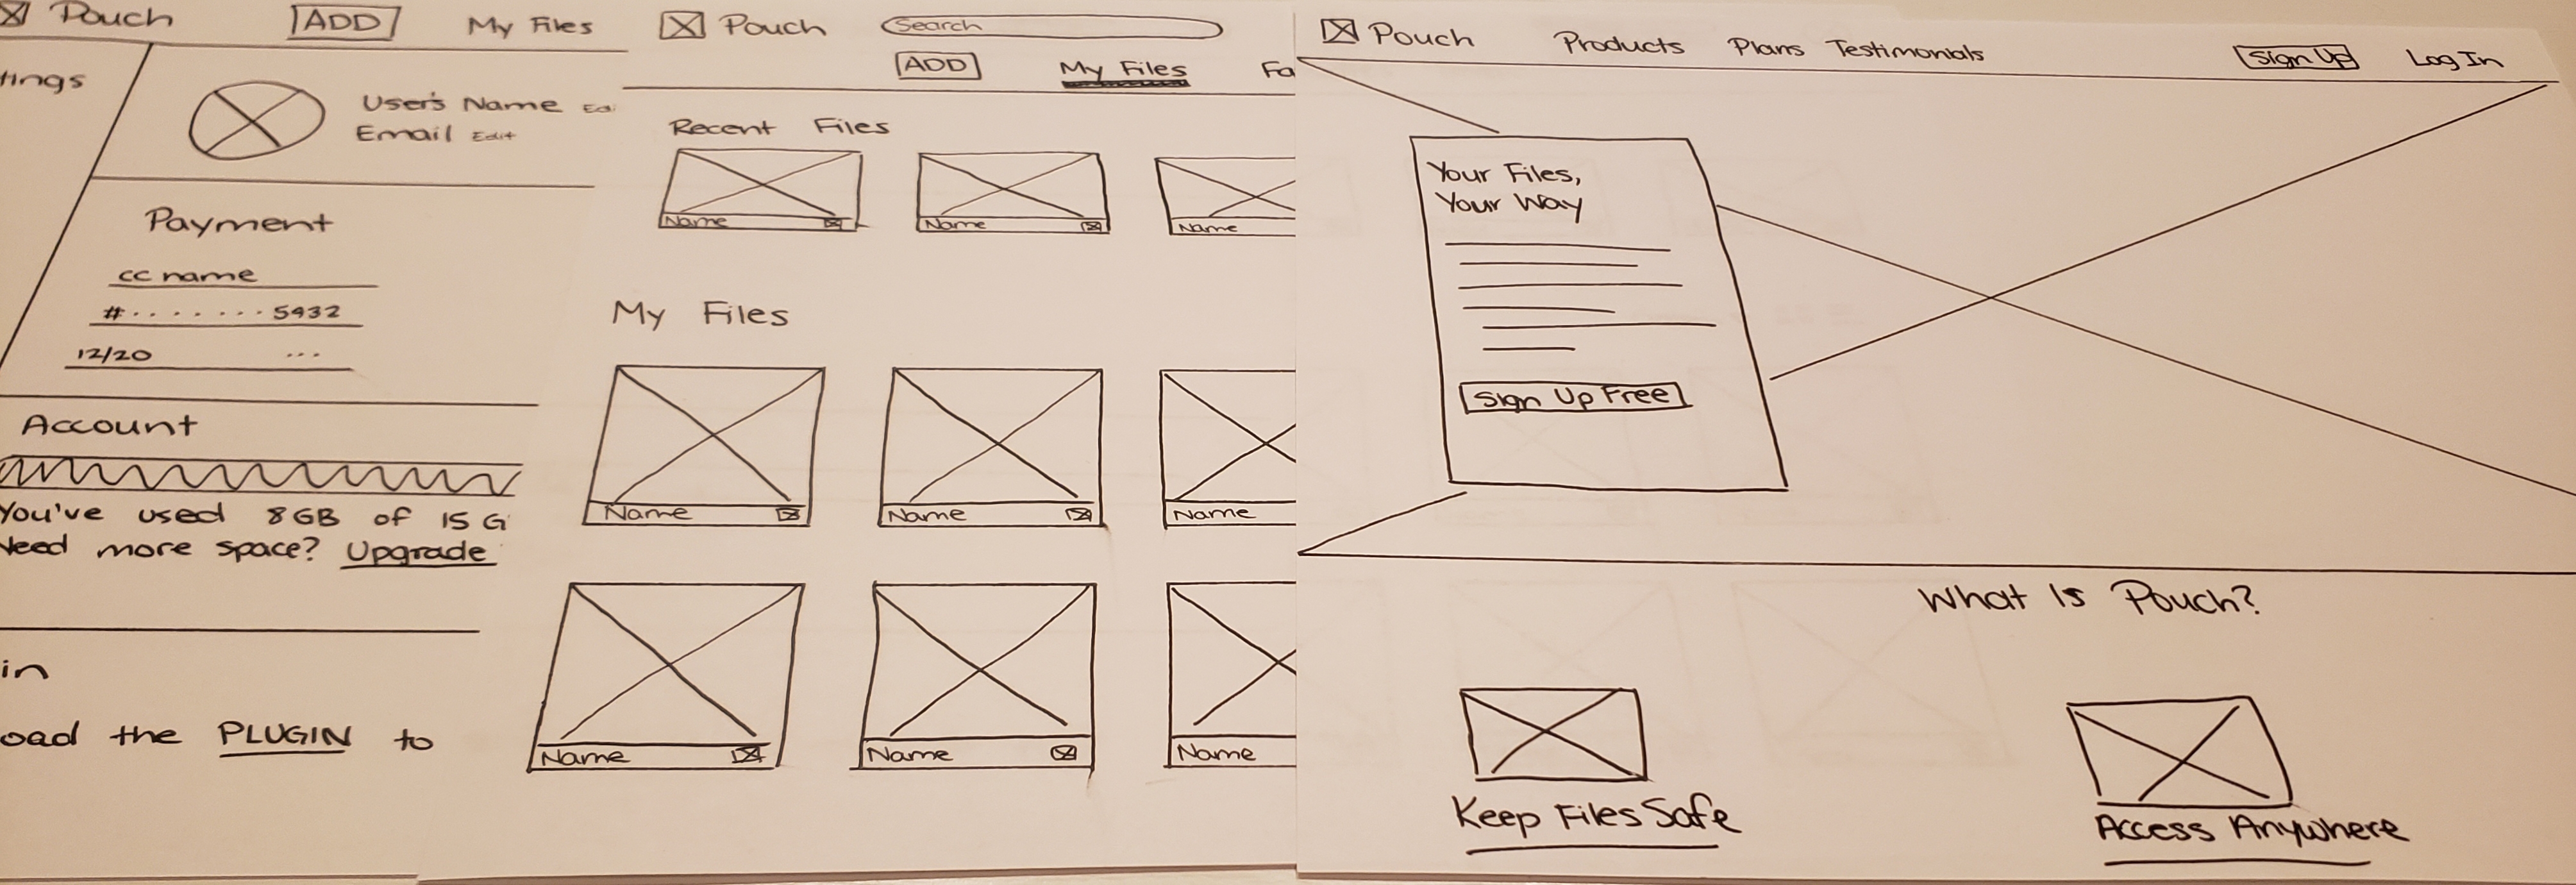 Pouch ADD My Files
tings
User's Name Ed
Email Edit
Payment
cc name
#........5932
12/20 ...
Account
You've used 8GB of 15 G
Need more space? Upgrade
in
oad the PLUGIN to
Pouch Search
ADD My Files Fa
Recent Files
Name Name Name
My Files
Name Name Name
Name Name Name
Pouch Products Plans Testimonials Sign Up Log In
Your Files,
Your Way
Sign Up Free
What Is Pouch?
Keep Files Safe
Access Anywhere